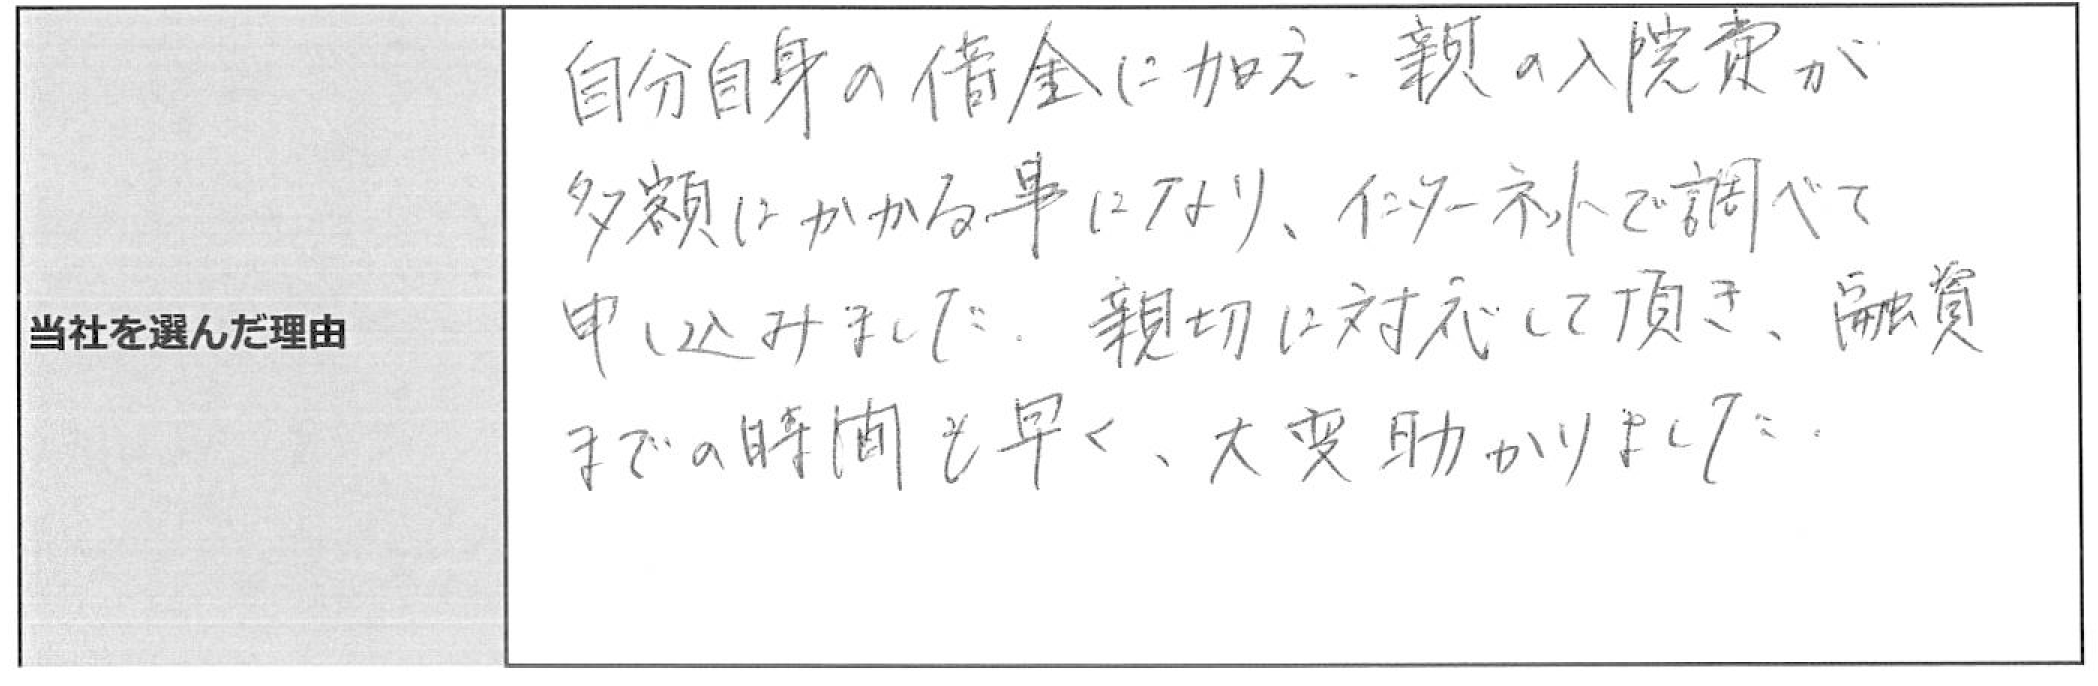 当社を選んだ理由
自分自身の借金に加え、親の入院費が
多額にかかる事になり、インターネットで調べて
申し込みました。親切に対応して頂き、融資
までの時間も早く、大変助かりました。